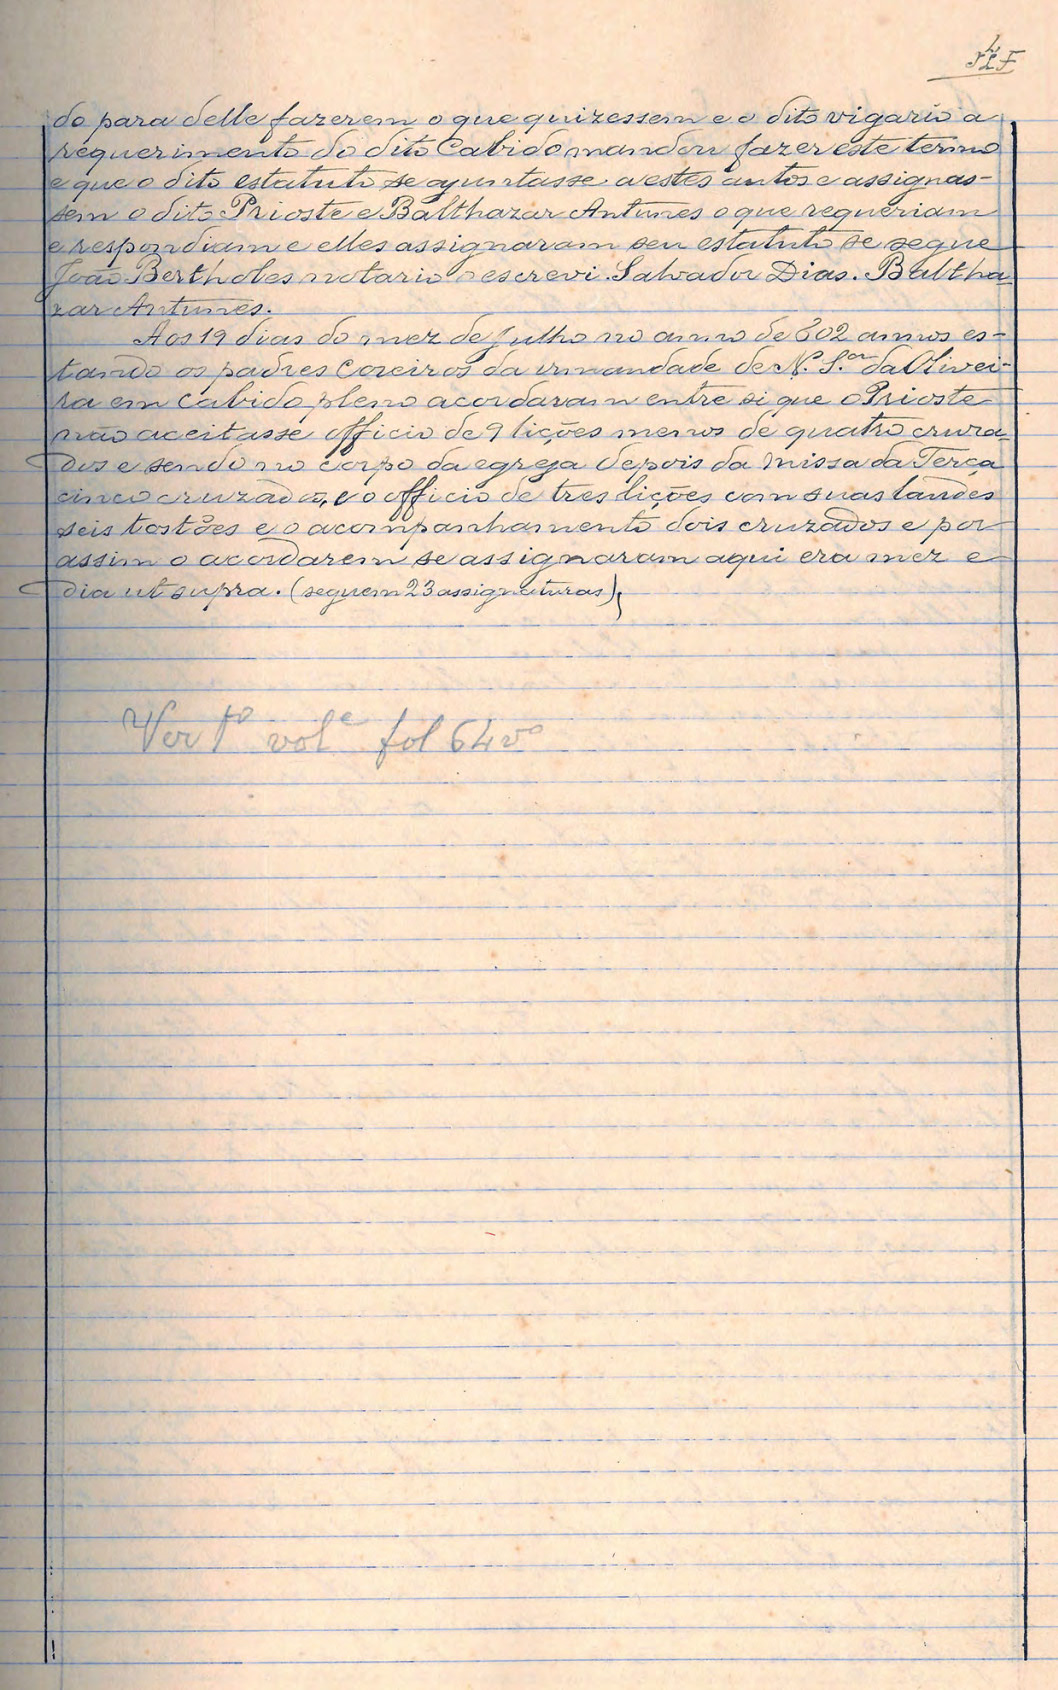 do para delle fazerem o que quizessem e o dito vigario a
requerimento do dito Cabido mandou fazer este termo
e que o dito estatuto se ajuntasse a estes autos e assignas-
sem o dito Prioste e Balthazar Antunes o que requeriam
e respondiam e elles assignaram seu estatuto se segue
João Bertholes notario o escrevi. Salvador Dias. Baltha
zar Antunes.
Aos 19 dias do mez de Julho no anno de 602 annos es-
tando os padres Coreiros da irmandade de N. S.ora da Olivei-
ra em Cabido pleno acordaram entre si que o Prioste
não aceitasse officio de 9 lições menos de quatro cruza
dos e sendo no corpo da egreja depois da Missa da Terça
cinco cruzados, e o officio de tres lições com suas laudes
seis tostões e o acompanhamento dois cruzados e por
assim o acordarem se assignaram aqui era mez e
dia ut supra. (seguem 23 assignaturas)
Ver 1º vol.e fol 64 vº